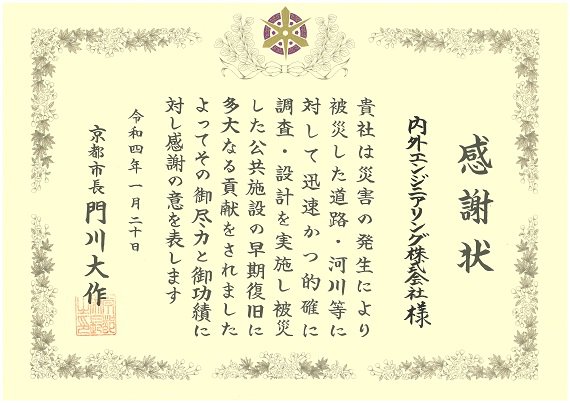 感謝状
内外エンジニアリング株式会社 様
貴社は災害の発生により
被災した道路・河川等に
対して迅速かつ的確に
調査・設計を実施し被災
した公共施設の早期復旧に
多大なる貢献をされました
よってその御尽力と御功績に
対し感謝の意を表します
令和四年一月二十日
京都市長 門川大作